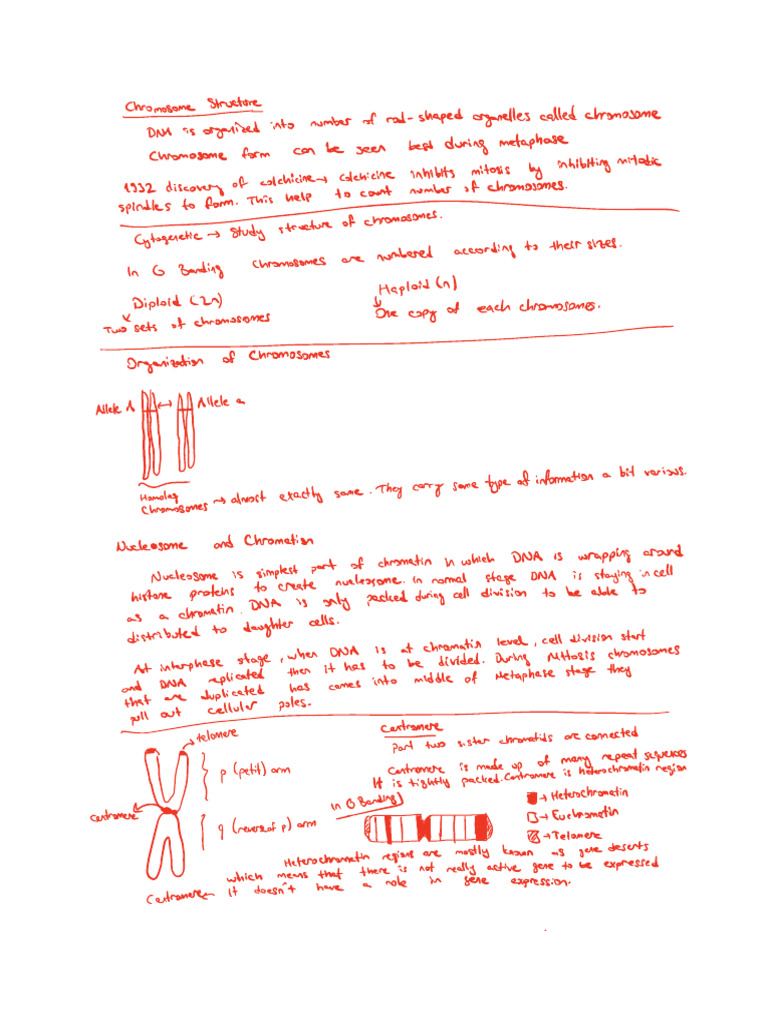 Chromosome Structure
DNA is organized into number of rod-shaped organelles called chromosome
Chromosome form can be seen best during metaphase
1932 discovery of colchicine → colchicine inhibits mitosis by inhibiting mitotic
spindles to form. This help to count number of chromosomes.
Cytogenetic → Study structure of chromosomes.
In G Banding chromosomes are numbered according to their sizes.
Diploid (2n)
Two sets of chromosomes
Haploid (n)
One copy of each chromosomes.
Organization of Chromosomes
Allele A
Allele a
Homolog
Chromosomes → almost exactly same. They carry same type of information a bit various.
Nucleosome and Chromation
Nucleosome is simplest part of chromatin in which DNA is wrapping around
histone proteins to create nucleosome. In normal stage DNA is staying in cell
as a chromatin. DNA is only packed during cell division to be able to
distributed to daughter cells.
At interphase stage, when DNA is at chromatin level, cell division start
and DNA replicated then it has to be divided. During Mitosis chromosomes
that are duplicated has comes into middle of Metaphase stage they
pull out cellular poles.
telomere
p (petit) arm
centromere
q (reverse of p) arm
Centromere
Part two sister chromatids are connected
Centromere is made up of many repeat sequences
It is tightly packed. Centromere is heterochromatin region
In G Banding
→ Heterochromatin
→ Euchromatin
→ Telomere
Heterochromatin regions are mostly known as gene deserts
which means that there is not really active gene to be expressed
Centromere → It doesn't have a role in gene expression.